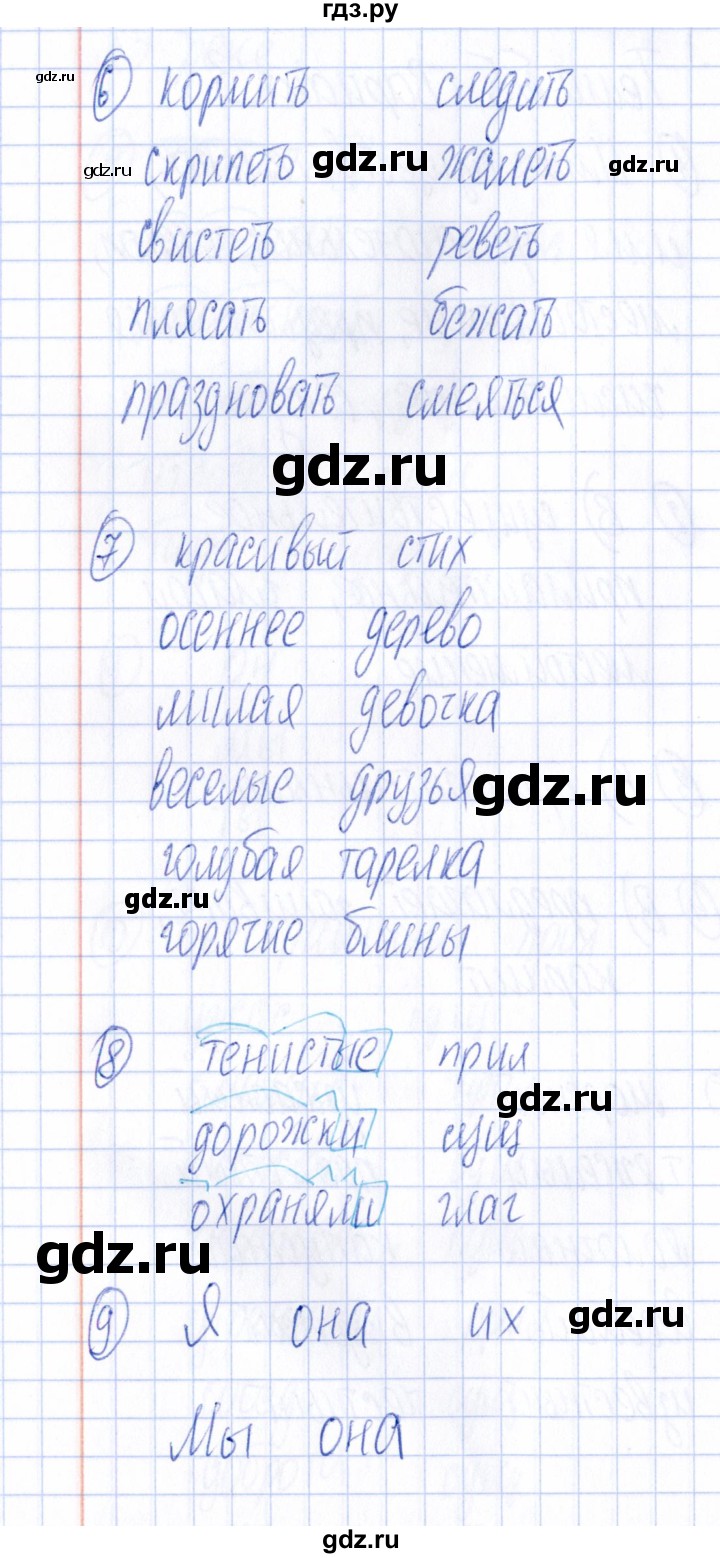 гдз.ру
gdz.ru
6 кормить следить
gdz.ru скрипеть gdz.ru жалеть gdz.ru
свистеть реветь
плясать бежать
праздновать смеяться
gdz.ru
7 красивый стих
осеннее дерево
милая девочка
веселые друзья gdz.ru
голубая тарелка
gdz.ru
горячие блины
8 тенистые прил
gdz.ru
дорожки сущ
охраняли глаг
gdz.ru
9 Я она их gdz.ru
Мы она
gdz.ru